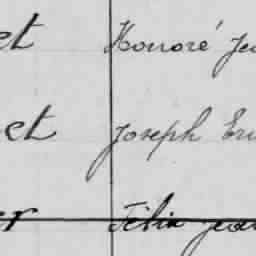 et Honoré Jea
et Joseph Eru
er Félix Jean